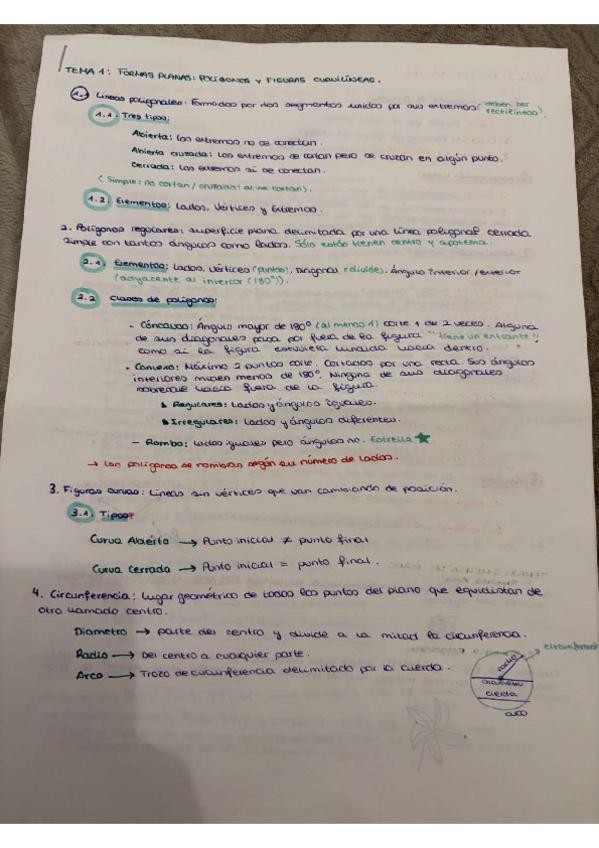 TEMA 1: FORMAS PLANAS: POLÍGONOS Y FIGURAS CURVILÍNEAS.
1. Líneas poligonales: Formadas por dos segmentos unidos por sus extremos (deben ser rectilíneos).
1.1. Tres tipos:
Abierta: los extremos no se conectan.
Abierta cruzada: Los extremos se cortan pero se cruzan en algún punto.
Cerrada: Los extremos sí se conectan.
(Simple: no cortan / cruzada: sí se cortan).
1.2. Elementos: Lados, Vértices y Extremos.
2. Polígonos regulares: superficie plana delimitada por una línea poligonal cerrada
simple con tantos ángulos como lados. Sólo éstos tienen centro y apotema.
2.1 Elementos: Lados, vértices (puntos), diagonal (divide). Ángulo interior / exterior
(adyacente al interior (180º)).
2.2 Clases de polígonos:
- Cóncavos: Ángulo mayor de 180º (al menos 1) corte 1 ou 2 veces. Alguna
de sus diagonales pasa por fuera de la figura "tiene un entrante"
como si la figura estuviera hundida hacia dentro.
- Convexo: Máximo 2 puntos corte. Cortados por una recta. Sus ángulos
interiores miden menos de 180º. Ninguna de sus diagonales
sobresale hacia fuera de la figura.
Regulares: Lados y ángulos iguales.
Irregulares: Lados y ángulos diferentes.
- Rombo: lados iguales pero ángulos no. Estrella
→ Los polígonos se nombran según su número de lados.
3. Figuras curvas: Líneas sin vértices que van cambiando de posición.
3.1. Tipos:
Curva Abierta → Punto inicial ≠ punto final
Curva Cerrada → Punto inicial = punto final.
4. Circunferencia: Lugar geométrico de todos los puntos del plano que equidistan de
otro llamado centro.
Diametro → parte del centro y divide a la mitad la circunferencia.
Radio → Del centro a cualquier parte.
Arco → Trozo de circunferencia delimitado por la cuerda.
circunferencia
radio
diámetro
cuerda
arco